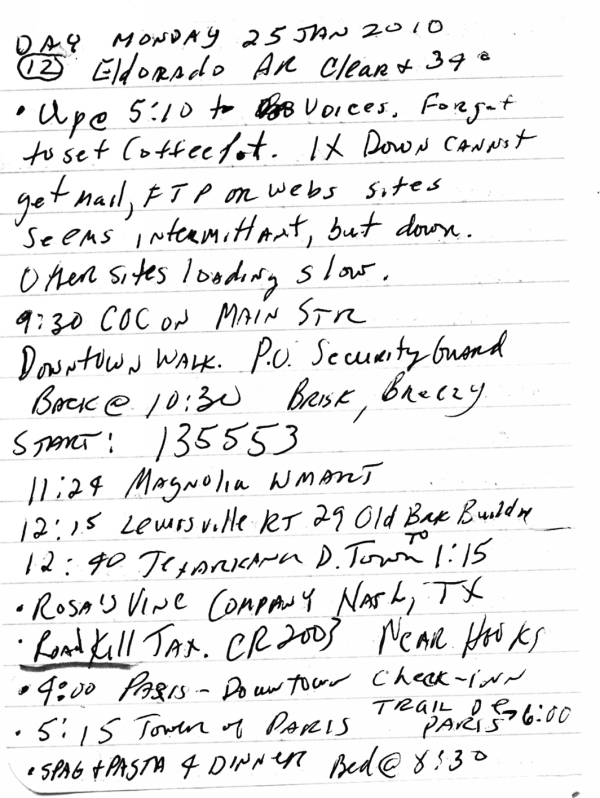 DAY MONDAY 25 JAN 2010
12 Eldorado AR Clear + 34°
• Up @ 5:10 to Voices. Forgot
to set Coffee Pot. 1X Down cannot
get mail, FTP or webs sites
seems intermittant, but down.
Other sites loading slow.
9:30 COC on Main Str
Downtown Walk. P.O. Security Guard
Back @ 10:30 Brisk, Breezy
START: 135553
11:24 Magnolia WMART
12:15 Lewisville RT 29 Old Buildn
12:40 Texarkana D. Town TO 1:15
• Rosa's Vine Company Nash, TX
• Road Kill Tax. CR 2003 Near Hooks
• 4:00 Paris - Downtown Check-inn
• 5:15 Tower of Paris Trail De Paris → 6:00
• SPAG + PASTA 4 DINNER Bed @ 8:30